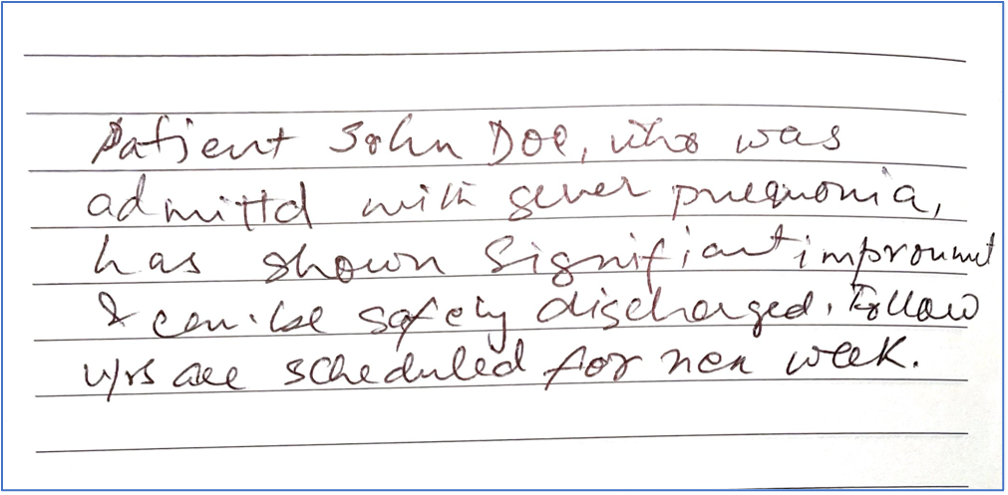 Patient John Doe, who was
admittd with sever pneumonia,
has shown Signifiant improvmnt
& can be safely discharged. Follow
u/rs are scheduled for nex week.